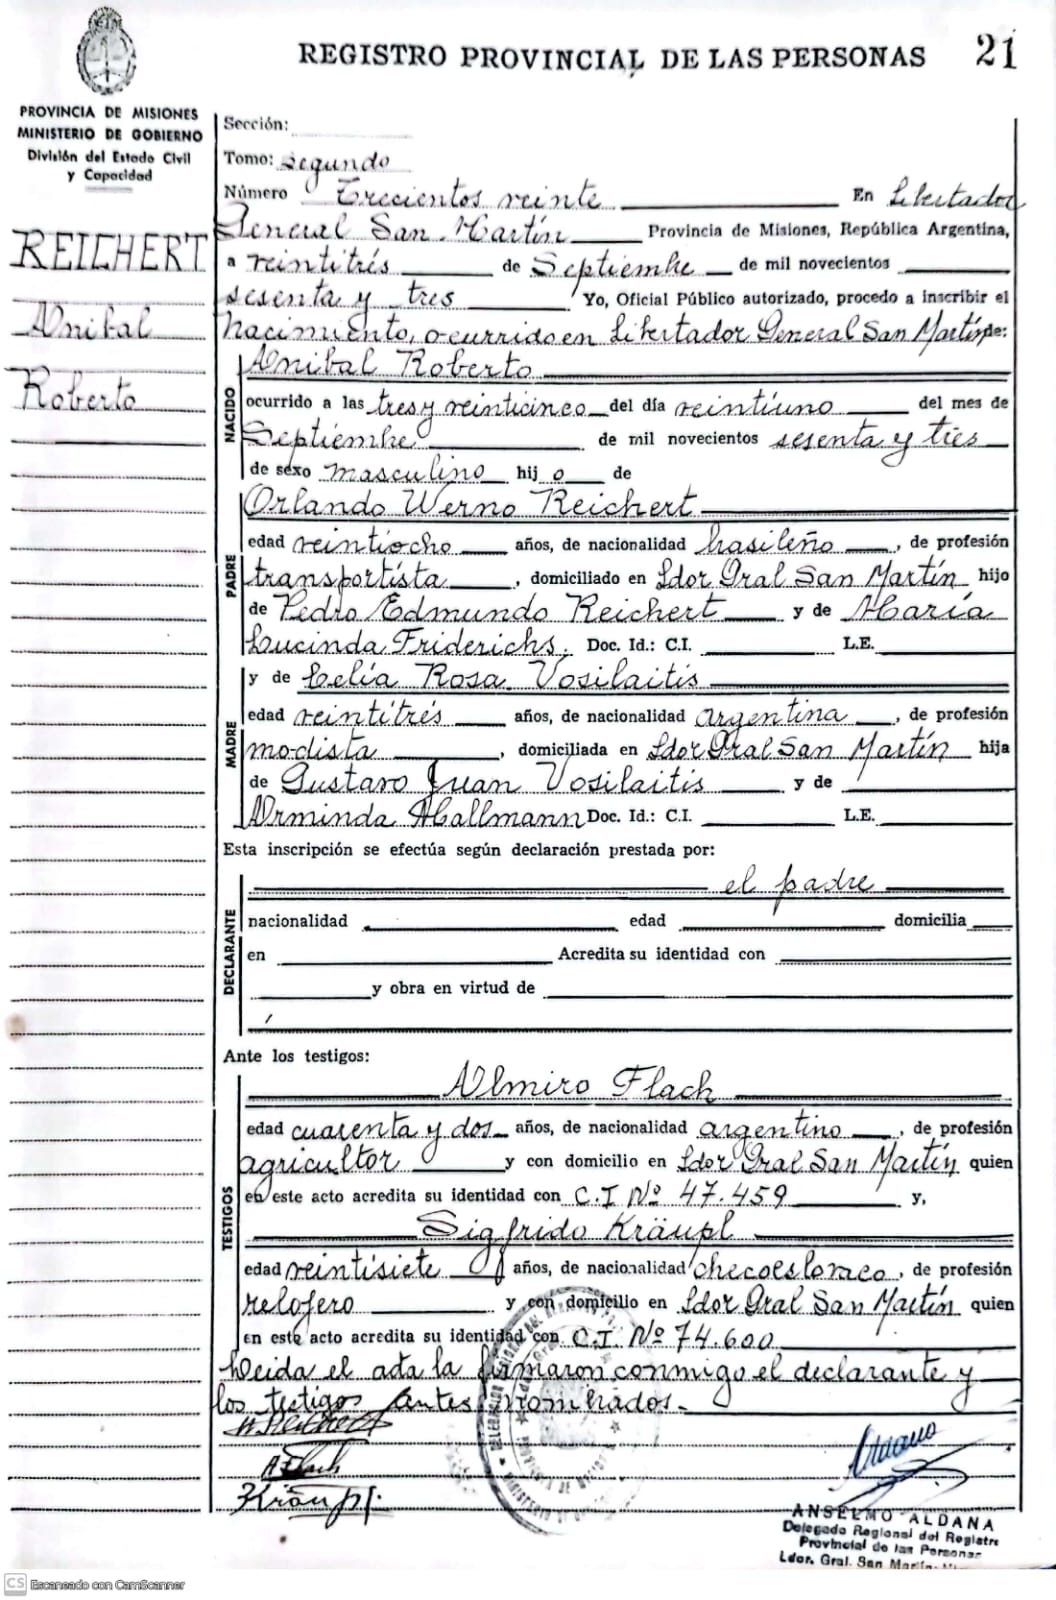 REGISTRO PROVINCIAL DE LAS PERSONAS 21
PROVINCIA DE MISIONES
MINISTERIO DE GOBIERNO
División del Estado Civil
y Capacidad
REICHERT
Anibal
Roberto
Sección:
Tomo: segundo
Número Trecientos veinte En Libertador
General San Martín Provincia de Misiones, República Argentina,
a veintitrés de Septiembre de mil novecientos
sesenta y tres Yo, Oficial Público autorizado, procedo a inscribir el
nacimiento, ocurrido en Libertador General San Martín de:
Anibal Roberto
NACIDO
ocurrido a las tres y veinticinco del día veintiuno del mes de
Septiembre de mil novecientos sesenta y tres
de sexo masculino hij o de
Orlando Werno Reichert
PADRE
edad veintiocho años, de nacionalidad brasileño, de profesión
transportista, domiciliado en Ldor Gral San Martín hijo
de Pedro Edmundo Reichert y de María
Lucinda Friderichs. Doc. Id.: C.I. L.E.
y de Celia Rosa Vosilaitis
MADRE
edad veintitrés años, de nacionalidad argentina, de profesión
modista, domiciliada en Ldor Gral San Martín hija
de Gustavo Juan Vosilaitis y de
Arminda Hallmann Doc. Id.: C.I. L.E.
Esta inscripción se efectúa según declaración prestada por:
el padre
DECLARANTE
nacionalidad edad domicilia
en Acredita su identidad con
y obra en virtud de
Ante los testigos:
Almiro Flach
TESTIGOS
edad cuarenta y dos años, de nacionalidad argentino, de profesión
agricultor y con domicilio en Ldor Gral San Martín quien
en este acto acredita su identidad con C.I Nº 47.459 y,
Sigfrido Kräupl
edad veintisiete años, de nacionalidad checoeslovaco, de profesión
relojero y con domicilio en Ldor Gral San Martín quien
en este acto acredita su identidad con C.I. Nº 74.600
Leida el acta la firmaron conmigo el declarante y
los testigos antes nombrados.-
A Flach
Kräupl.
ANSELMO ALDANA
Delegado Regional del Registro
Provincial de las Personas
Ldor. Gral. San Martín
CS Escaneado con CamScanner